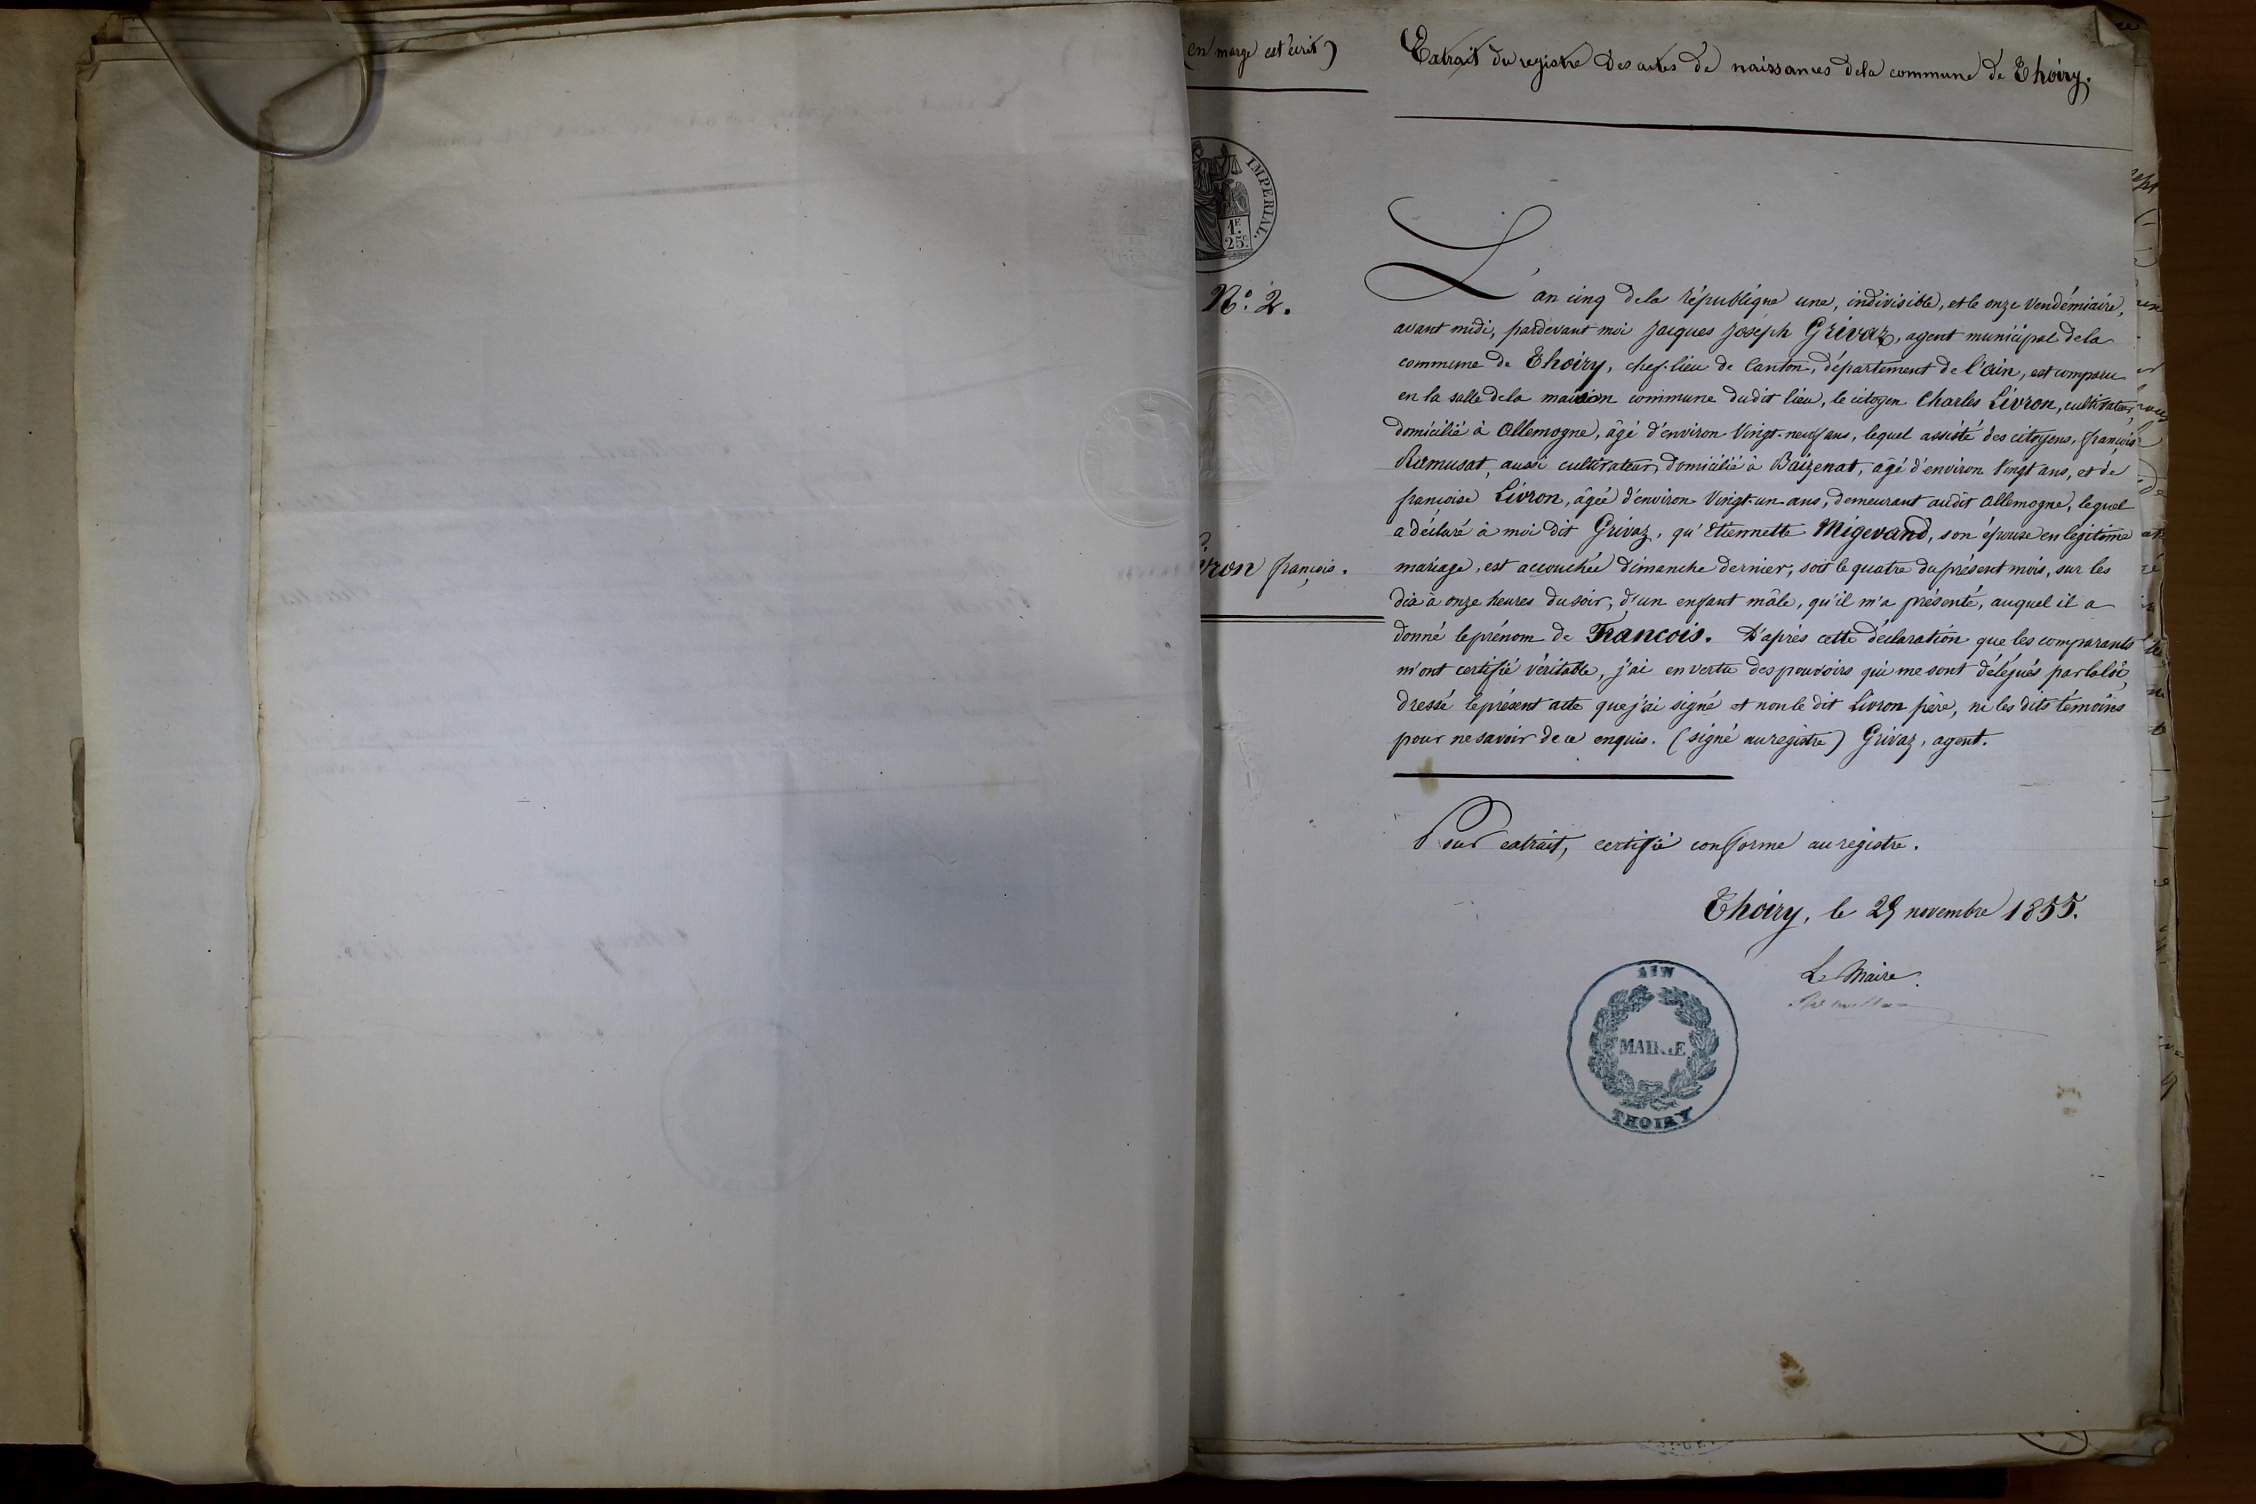 (en marge est écrit)
Extrait du registre des actes de naissances de la commune de Thoiry.
IMPERIAL.
1F
25c
No. 2.
vron françois.
L'an cinq de la république une, indivisible, et le onze vendémiaire,
avant midi, pardevant moi Jacques Joseph Grivaz, agent municipal de la
commune de Thoiry, chef-lieu de Canton, département de l'ain, est comparu
en la salle de la maision commune du dit lieu, le citoyen Charles Livron, cultivateur,
domicilié à Allemogne, âgé d'environ Vingt-neuf ans, lequel assisté des citoyens, françois
Ramusat, aussi cultivateur, domicilié à Baizenat, âgé d'environ Vingt ans, et de
françoise Livron, âgée d'environ Vingt-un ans, demeurant audit Allemogne, lequel
a déclaré à moi dit Grivaz, qu'Etiennette Mégevand, son épouse en légitime
mariage, est accouchée dimanche dernier, soit le quatre du présent mois, sur les
dix à onze heures du soir, d'un enfant mâle, qu'il m'a présenté, auquel il a
donné le prénom de François. D'après cette déclaration que les comparants
m'ont certifié véritable, j'ai en vertu des pouvoirs qui me sont délégués par la loi,
dressé le présent acte que j'ai signé et non le dit Livron père, ni les dits témoins
pour ne savoir de ce enquis. (signé au registre) Grivaz, agent.
Pour extrait, certifié conforme au registre.
Thoiry, le 29 novembre 1855.
Le Maire.
AIN
MAIRIE
THOIRY